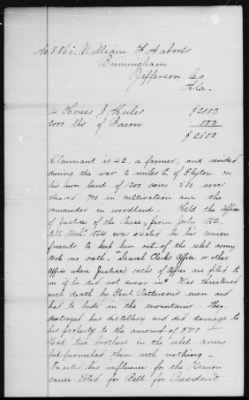 William H. Nabors
Birmingham
Jefferson Co
Ala.
Horses & Mules $2000
2000 lbs of Bacon
$2500
Claimant is 52, a farmer, and resided
during the war 2 miles E. of Elyton in
his own land of 200 acres
in cultivation and the
remainder in woodland. Held the office
of Justice of the Peace, from July 1852,
till was elected by his union
friends to keep him out of the rebel army
took no oath. Search Clerks Office or other
office where Justices oaths of office are filed to
see if he did not swear in. Was threatened
with death by Genl Patterson's men and
had to hide in the mountains. They
destroyed his distillery and did damage to
his property to the amount of
Had two brothers in the rebel army
but furnished them with nothing.
Exerted his influence for the Union
cause. Voted for Bell for President